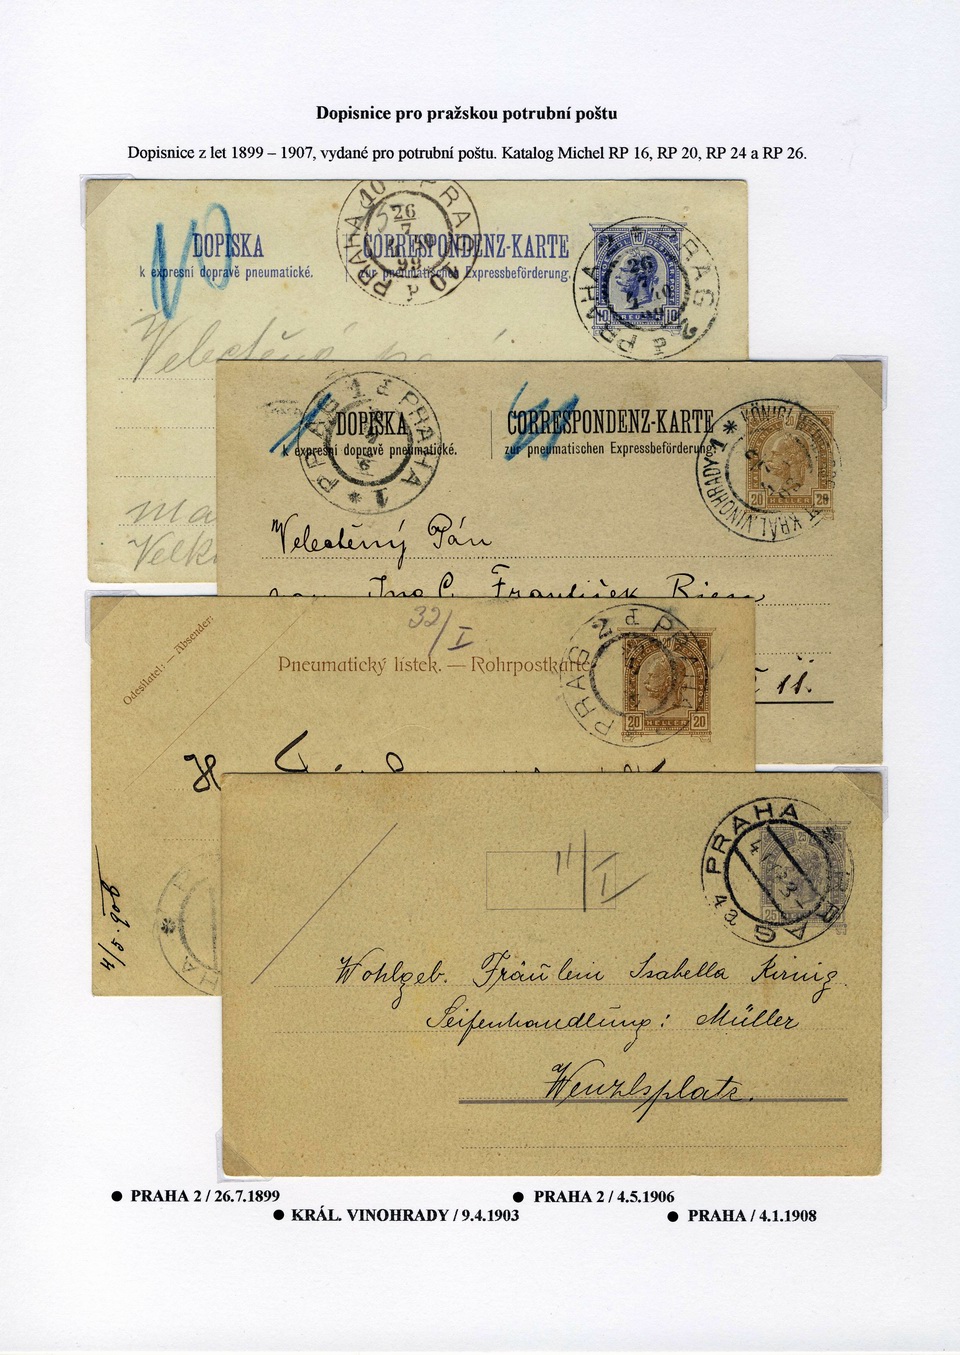 Dopisnice pro pražskou potrubní poštu
Dopisnice z let 1899 – 1907, vydané pro potrubní poštu. Katalog Michel RP 16, RP 20, RP 24 a RP 26.
10
DOPISKA
k expresní dopravě pneumatické.
CORRESPONDENZ-KARTE
zur pneumatischen Expressbeförderung.
PRAG 10 PRAHA 10
26
7
99
PRAG 2 PRAHA 2
10 KREUZER 10
Velectěná
Velk
DOPISKA
k expresní dopravě pneumatické.
CORRESPONDENZ-KARTE
zur pneumatischen Expressbeförderung.
PRAG 1 PRAHA 1
KRÁL. VINOHRADY 1
20 20
Velectěný Pán
pan Ing C. František
II.
Odesílatel: — Absender:
32/I
Pneumatický lístek. — Rohrpostkarte.
PRAG 2 PRAHA
20 HELLER 20
PRAHA
25
11/I
Wohlgeb. Fräulein Isabella
Seifenhandlung: Müller
Wenzlsplatz.
● PRAHA 2 / 26.7.1899
● PRAHA 2 / 4.5.1906
● KRÁL. VINOHRADY / 9.4.1903
● PRAHA / 4.1.1908